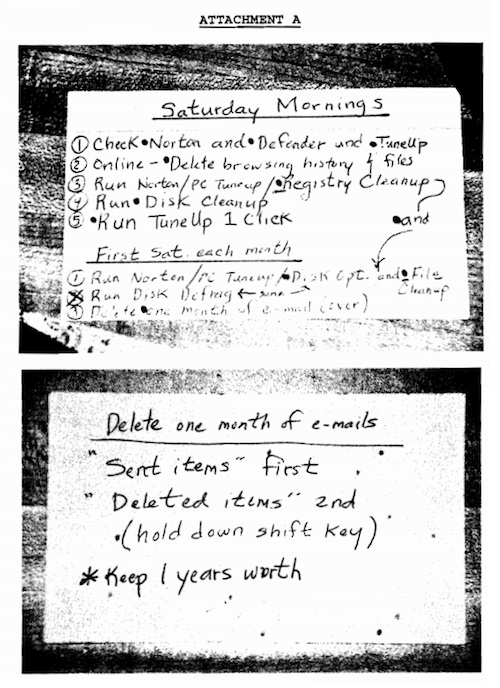 ATTACHMENT A
Saturday Mornings
① Check •Norton and •Defender and •TuneUp
② Online - •Delete browsing history & files
③ Run Norton/PC Tuneup/•Registry Cleanup
④ Run •Disk Cleanup
⑤ •Run TuneUp 1 Click
•and
First Sat. each month
① Run Norton/PC Tuneup/•Disk Opt. and •File Cleanup
Run Disk Defrag ← same →
Delete •one month of e-mail (over)
Delete one month of e-mails
"Sent items" first
"Deleted items" 2nd
•(hold down shift key)
* Keep 1 years worth